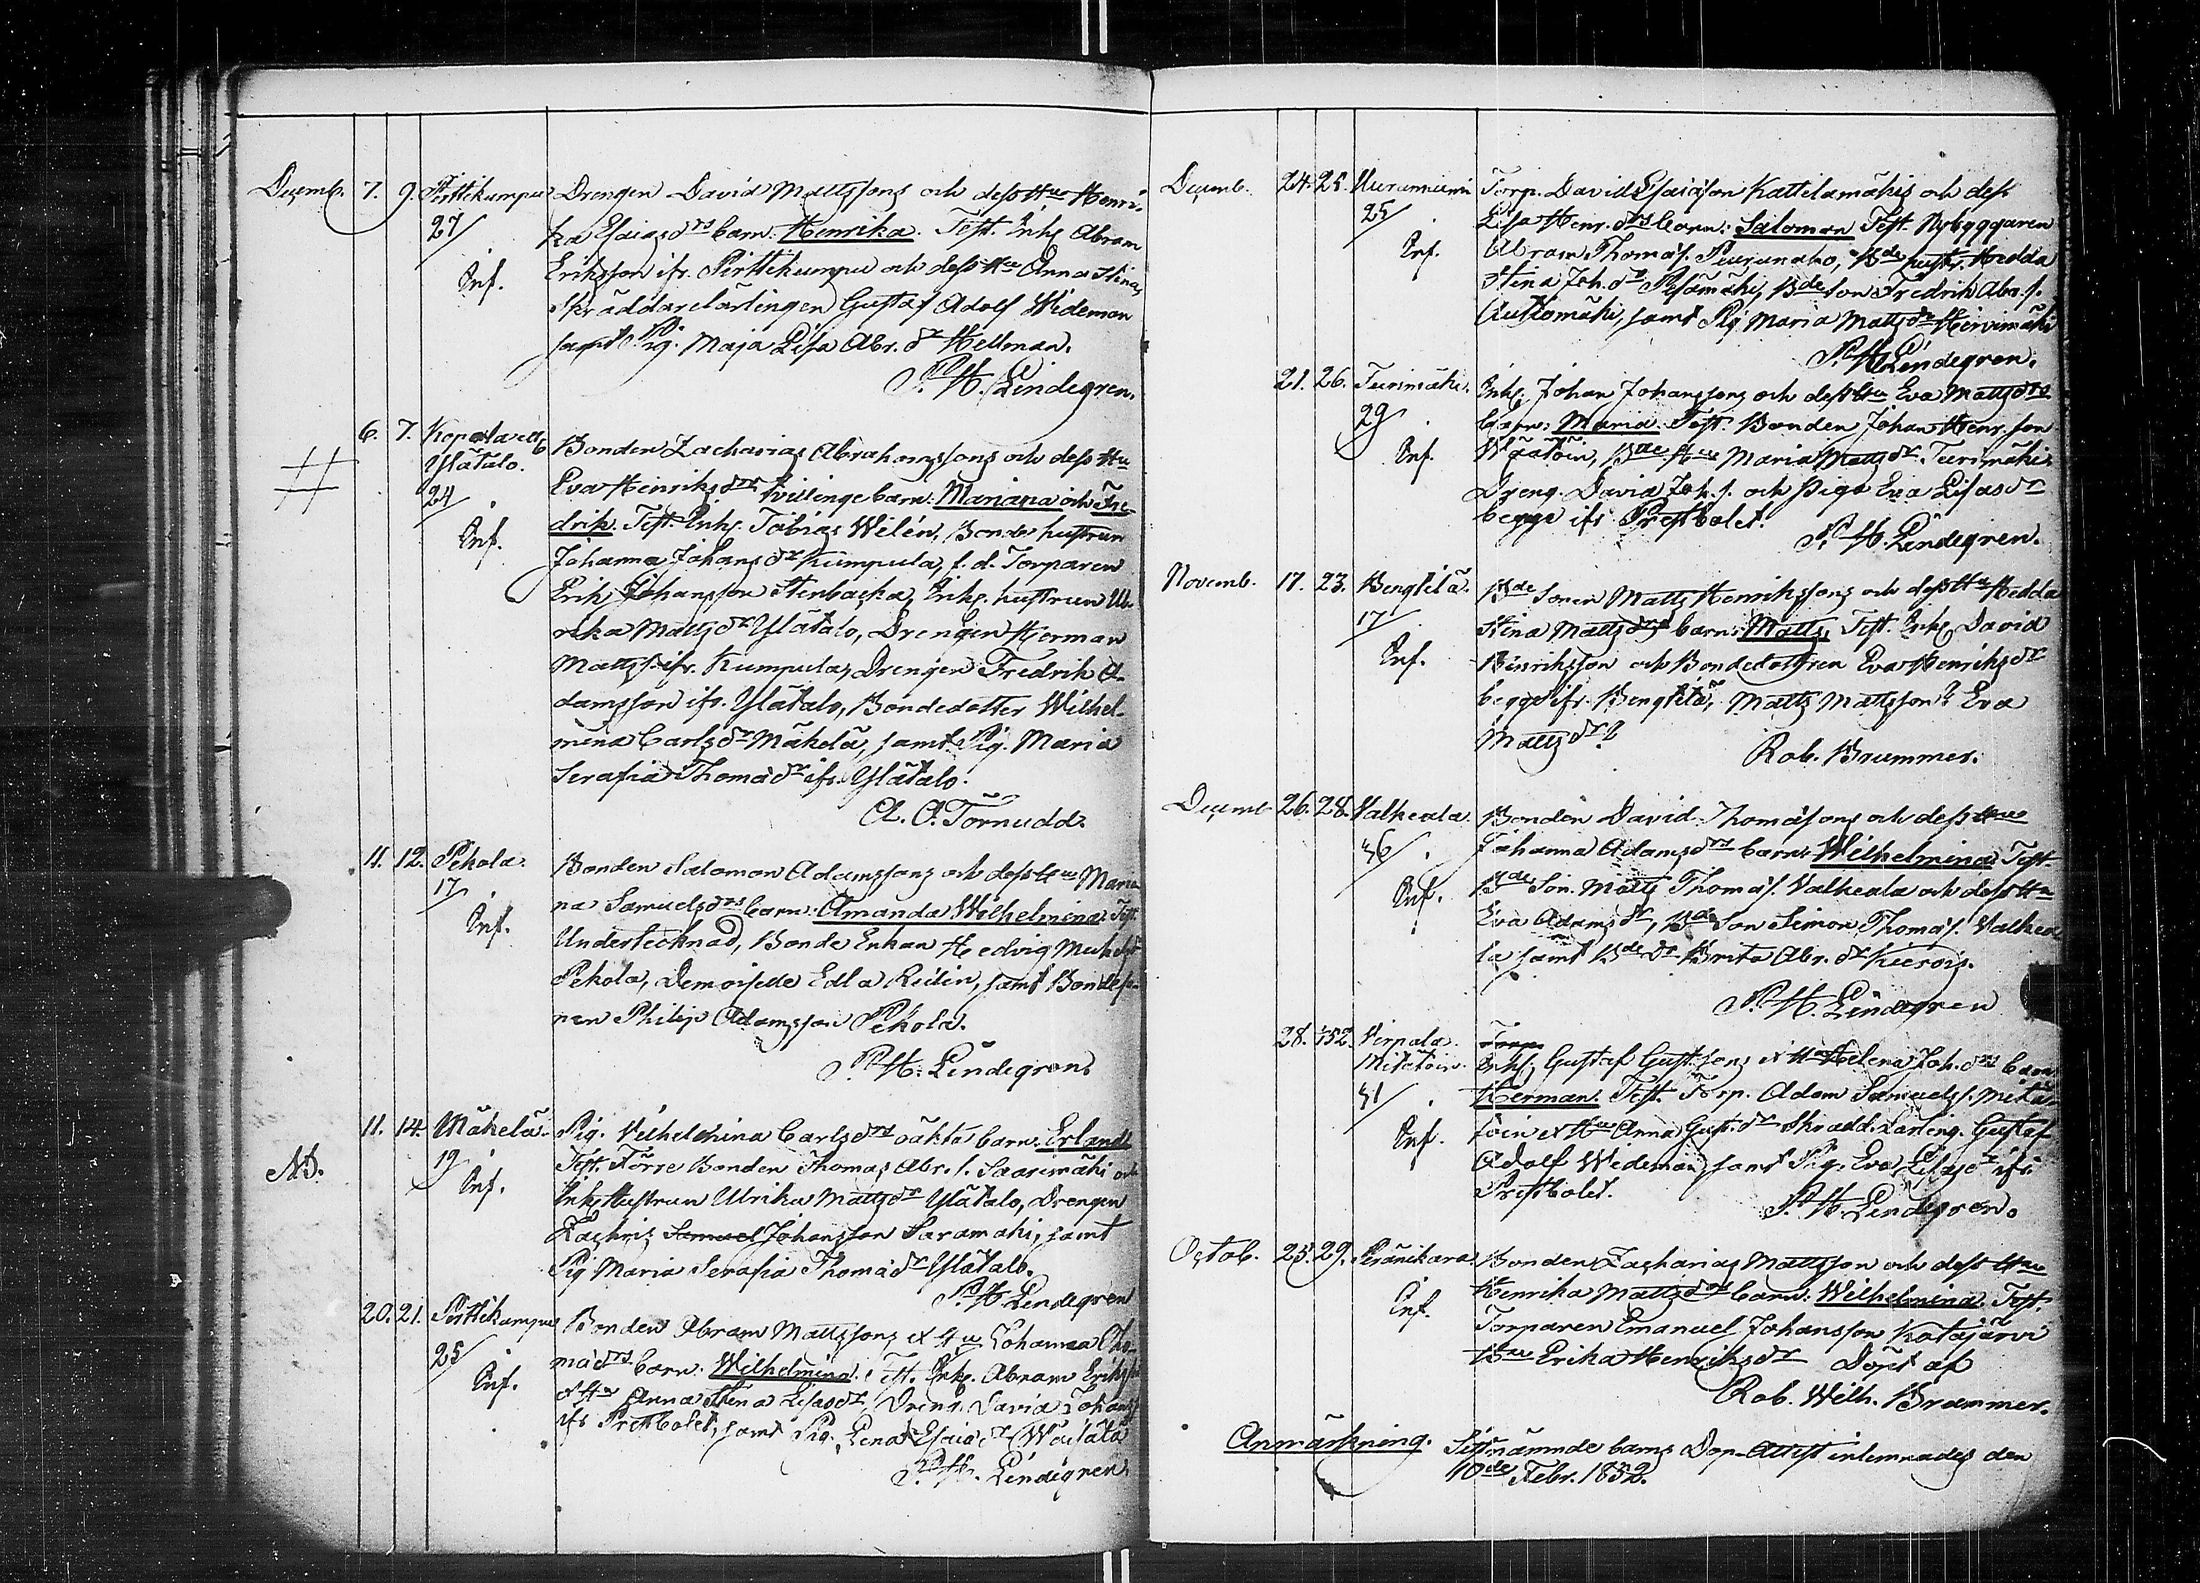 Decemb. 7. 9. Pirttikumpu Drengen David Mattssons och dess Hu Henri-
27/ ka Esaiasdrs barn: Henrika. Test. Inh. Abram
Inf. Eriksson ifr. Pirttikumpu och dess Hu Anna Stina,
Skräddarelärlingen Gustaf Adolf Wideman
samt Pig. Maja Lisa Abr. dr Hellman.
P. H. Lindegren.
6. 7. Ylätalo. Bonden Zacharias Abrahamssons och dess Hu
24/ Eva Henriksdrs tvillingebarn: Mariana och Fre-
Inf. drik. Test. Inh. Tobias Welén, Bonde hustrun
Johanna Johansdr Kumpula, f.d. Torparen
Erik Johansson Stenbacka, Inh. hustrun Ul-
rika Mattsdr Ylätalo, Drengen Herman
Matts. ifr. Kumpula, Drengen Fredrik A-
damsson ifr. Ylätalo, Bondedotter Wilhel-
mina Carlsdr Mäkelä, samt Pig. Maria
Serafia Thomadr ifr. Ylätalo.
A. O. Törnudd.
11. 12. Pekola. Bonden Salomon Adamssons och dess Hu Maria-
17/ na Samuelsdrs barn: Amanda Wilhelmina. Test.
Inf. Undertecknad, Bonde Enkan Hedvig
Pekola, Demoiselle Edla Reilin, samt Bondeso-
nen Philip Adamsson Pekola.
P. H. Lindegren.
11. 14. Mäkelä. Pig. Vilhelmina Carlsdrs oäkta barn: Erland.
19/ Test. Förre Bonden Thomas Abr. s. Saarimäki och
Inf. Inh. Hustrun Ulrika Mattsdr Ylätalo, Drengen
Zachris Samuel Johansson Saramäki, samt
Pig Maria Serafia Thomadr Ylätalo.
P. H. Lindegren
20. 21. Pirttikumpu Bonden Abram Mattssons et Hu Johanna Tho-
25/ madrs barn: Wilhelmina. Test. Inh. Abram Eriksson
Inf. et Hu Anna Stina Esasdr, Dreng. David Johans
ifr Prestbolet, samt Pig. Lena Esaiadr
P. H. Lindegren.
Decemb. 24. 25. Uuranniemi Torp. David Esaiasson Kattelamäkis och dess
25/ Lisa Henr. drs barn: Salomon Test. Nybyggaren
Inf. Abram Thomas. Peurunaho, Bde hustr. Hedda
Stina Joh. dr Pesämäki, Bde son Fredrik Abr. s.
Autiomäki, samt Pig. Maria Matts dr Hirvimäki
P. H. Lindegren.
21. 26. Turimäki. Inh. Johan Johanssons och dess Hu Eva Mattsdrs
29/ barn: Maria. Test. Bonden Johan Henr. son
Inf. Bde Hu Maria Mattsdr Turimäki,
Dreng David Joh. s. och Piga Eva Lisasdr
begge ifr Prestbolet.
P. H. Lindegren.
Novemb. 17. 23. Bengtilä. Bde Sonen Matts Henrikssons och dess Hu Hedda
17/ Stina Mattsdrs barn: Matts, Test. Inh. David
Inf. Henriksson och Bondedottren Eva Henriksdr
begge ifr. Bengtilä, Matts Mattsson? Eva
Mattsdr?
Rob. Brummer.
Decemb 26. 28. Valkeala. Bonden David Thomasons och dess Hu
36/ Johanna Adamsdrs barn: Wilhelmina Test.
Inf. Bde Son. Matts Thomas. Valkeala och dess Hu
Eva Adamsdr, Bde Son Simon Thomas. Valkea-
la samt Bde dr Brita Abr. dr
P. H. Lindegren
28. Virpala Torp.
Inh. Gustaf Gust. sons et Hu Helena Joh. drs barn
31/ Herman. Test. Torp. Adam Samuels.
Inf. et Hu Anna Gust. dr Skradd. Larling. Gustaf
Adolf Wideman, samt Pig. Eva Lisasdr ifr.
Prestbolet.
P. H. Lindegren.
Octob. 25. 29. Peränikara. Bonden Zacharias Mattsson och dess Hu
Inf. Henrika Mattsdrs barn: Wilhelmina. Test.
Torparen Emanuel Johansson Katajärvi
Hu Erika Henriksdr Döpt af
Rob. Wilh. Brummer.
Anmärkning. Sistnämnde barns Dop-Attest inlemnades den
10de Febr. 1852.